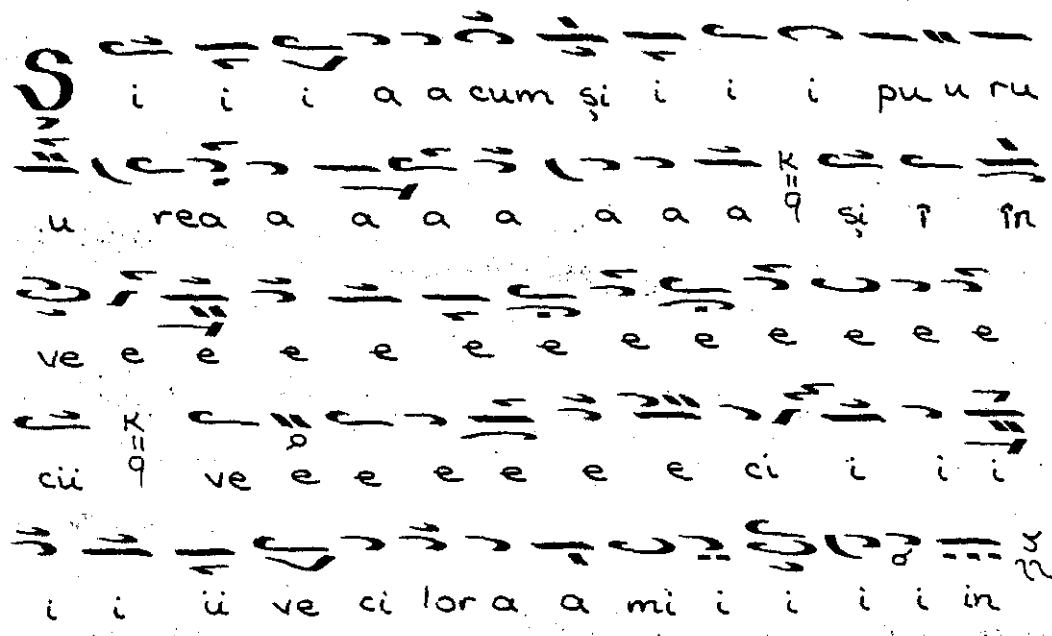 S i i i a a cum și i i i pu u ru
u rea a a a a a a a și î în
ve e e e e e e e e e e e e
cii ve e e e e e e ci i i i
i i ii ve ci lor a a mi i i i i in